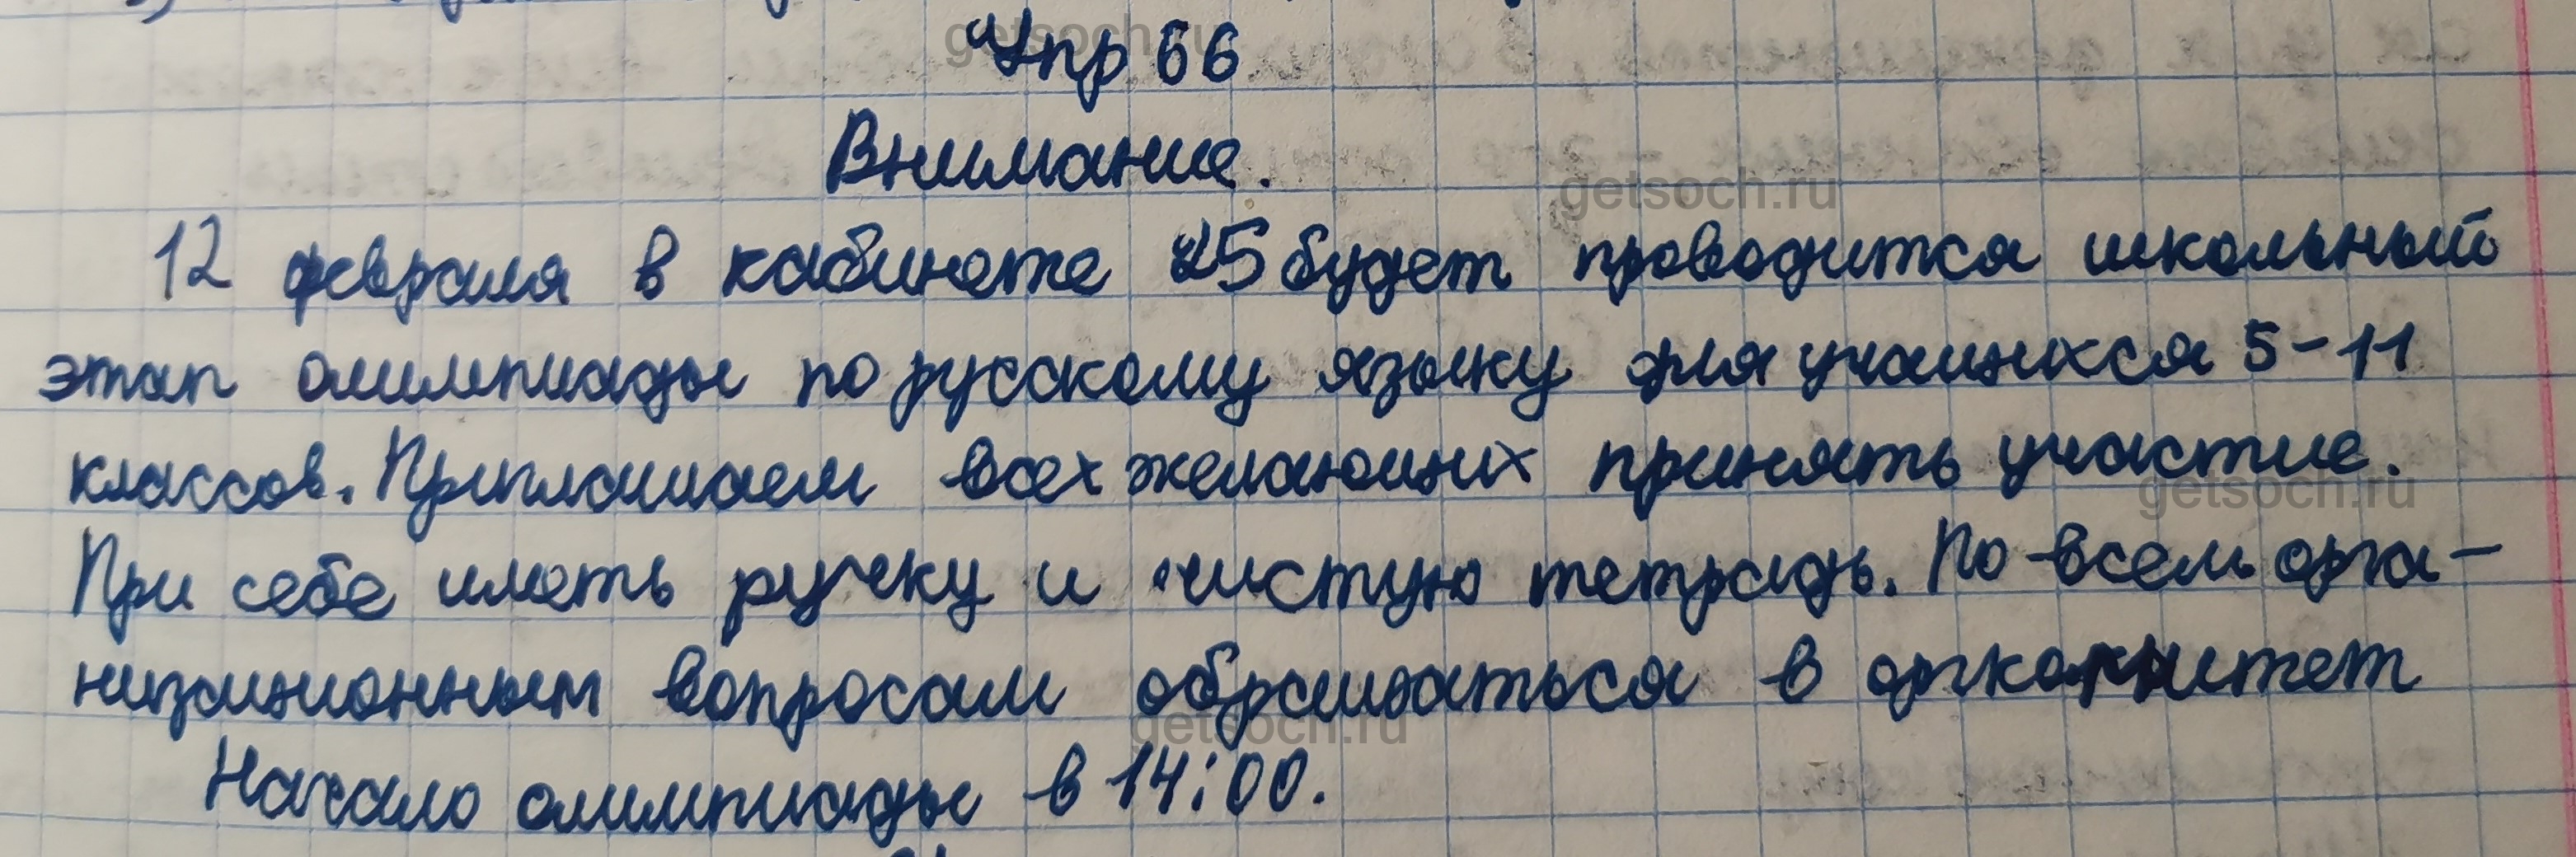 Упр 66
Внимание.
12 февраля в кабинете 25 будет проводится школьный
этап олимпиады по русскому языку для учащихся 5-11
классов. Приглашаем всех желающих принять участие.
При себе иметь ручку и чистую тетрадь. По всем орга-
низционным вопросам обращаться в оргкомитет
Начало олимпиады в 14:00.
getsoch.ru
getsoch.ru
getsoch.ru
getsoch.ru